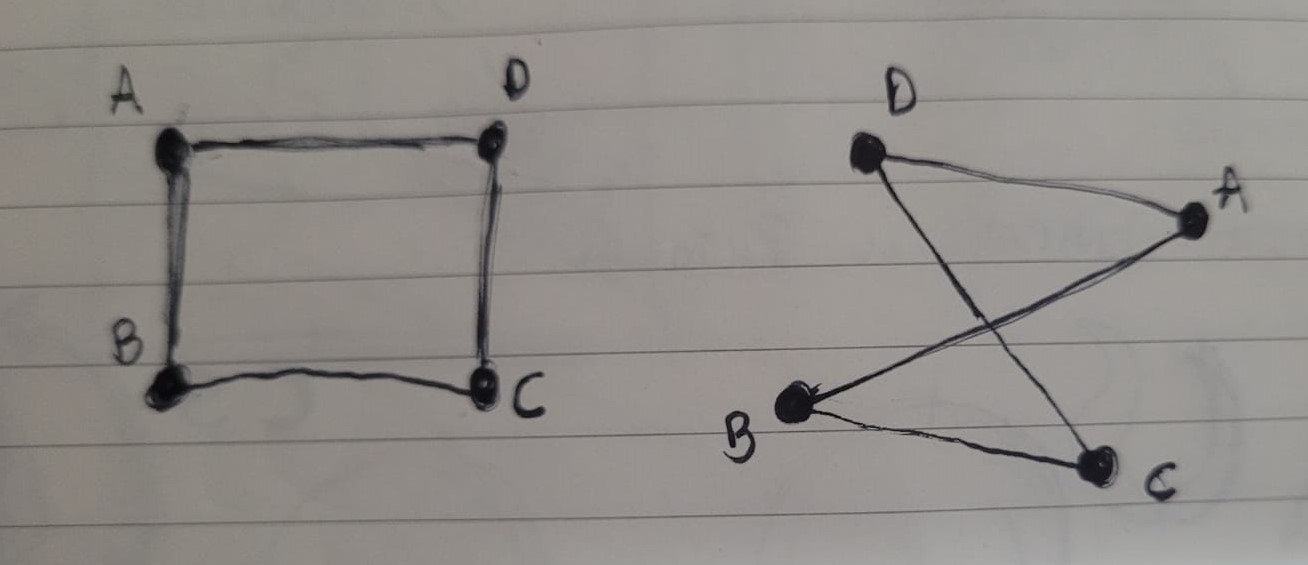 A D
B C
D
A
B
C